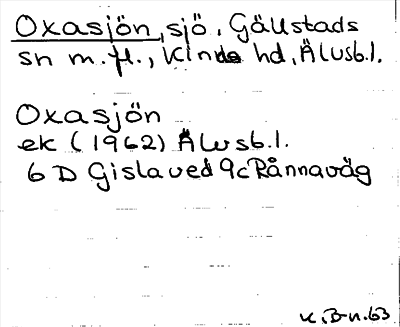 Oxasjön, sjö, Gällstads
sn m.fl., Kinds hd, Älvsb.l.
Oxasjön
ek (1962) Älvsb.l.
6 D Gislaved 9c Rånnaväg
K.B-n.63